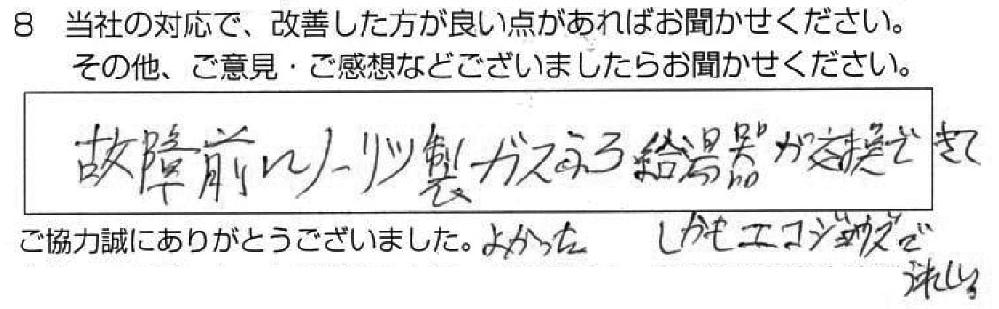 8 当社の対応で、改善した方が良い点があればお聞かせください。
その他、ご意見・ご感想などございましたらお聞かせください。
故障前にノーリツ製ガスふろ給湯器が交換できて
ご協力誠にありがとうございました。よかった しかもエコジョウズで
うれしい